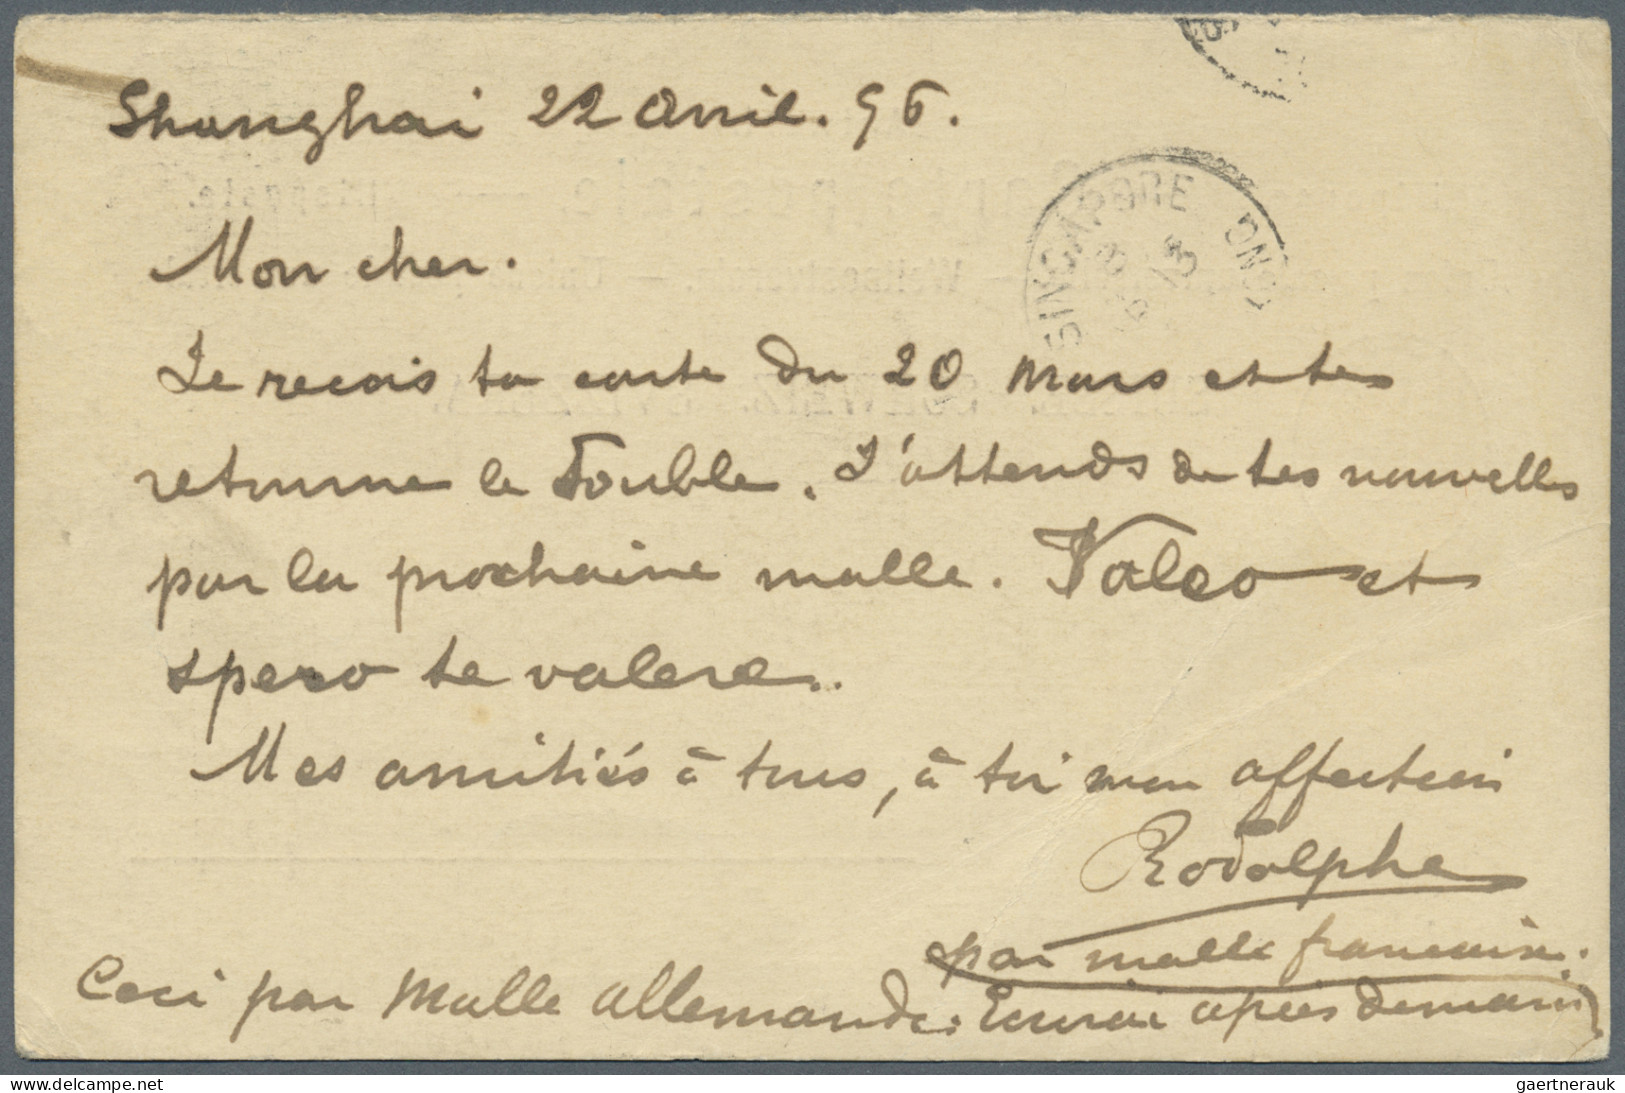 Shanghai 22 Avril. 96.
SINGAPORE
Mon cher.
Je recois ta carte du 20 Mars et te
retourne le double. J'attends de tes nouvelles
par la prochaine malle. Valeo et
spero te valere.
Mes amitiés à tous, à toi mon affection
Rodolphe
par malle francaise.
Ceci par Malle allemande. Ecrirai après demain
gaertnerauk